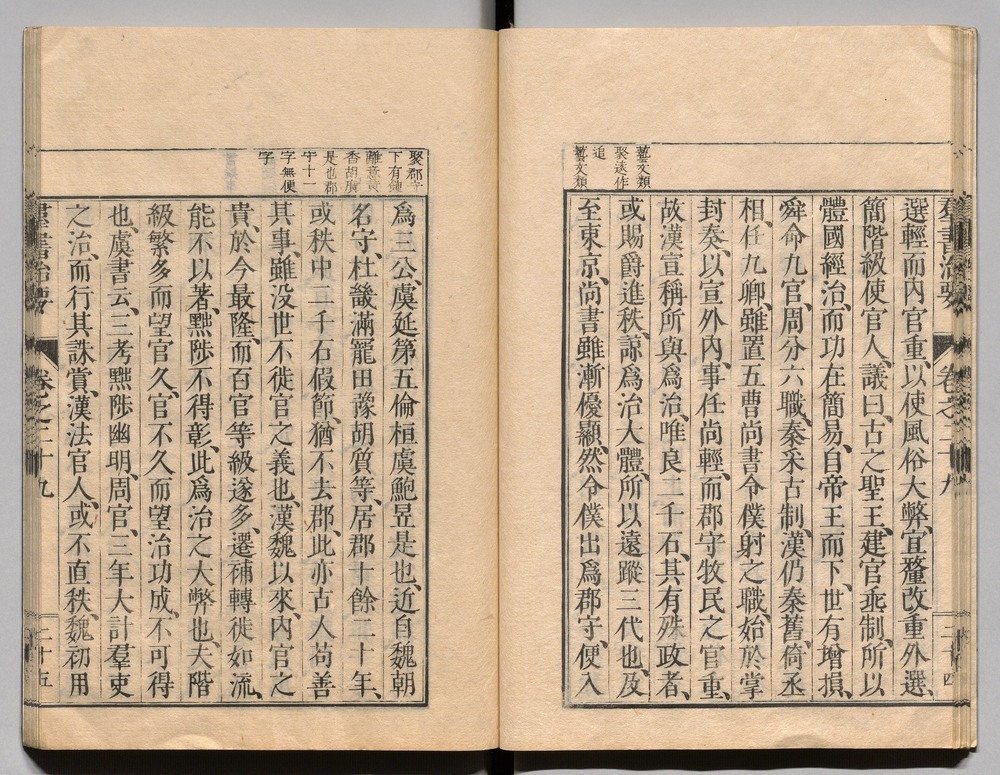 羣書治要 卷之二十九 二十四
藝文類
聚遠作
追
藝文類
選輕而内官重、以使風俗大弊、宜釐改重外選、
簡階級使官人、議曰、古之聖王、建官垂制、所以
體國經治、而功在簡易、自帝王而下、世有增損、
舜命九官、周分六職、秦采古制、漢仍秦舊、倚丞
相、任九卿、雖置五曹尚書令僕射之職、始於掌
封奏、以宣外内、事任尚輕、而郡守牧民之官重、
故漢宣稱所與爲治、唯良二千石、其有殊政者、
或賜爵進秩、諒爲治大體、所以遠蹤三代也、及
至東京、尚書雖漸優顯、然令僕出爲郡守、便入
聚郡守
下有鍾
離意黃
香胡廣
是也郡
守十一
字無便
字
爲三公、虞延第五倫桓虞鮑昱是也、近自魏朝
名守、杜畿滿寵田豫胡質等、居郡十餘二十年、
或秩中二千石假節、猶不去郡、此亦古人苟善
其事、雖没世不徙官之義也、漢魏以來、内官之
貴、於今最隆、而百官等級遂多、遷補轉徙如流、
能不以著、黜陟不得彰、此爲治之大弊也、夫階
級繁多而望官久、官不久而望治功成、不可得
也、虞書云、三考黜陟幽明、周官、三年大計羣吏
之治、而行其誅賞、漢法官人、或不直秩、魏初用
羣書治要 卷之二十九 二十五